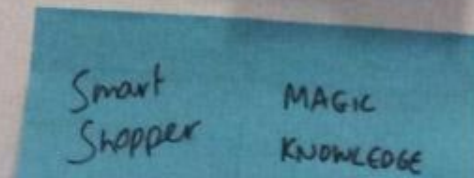 Smart
Shopper
MAGIC
KNOWLEDGE